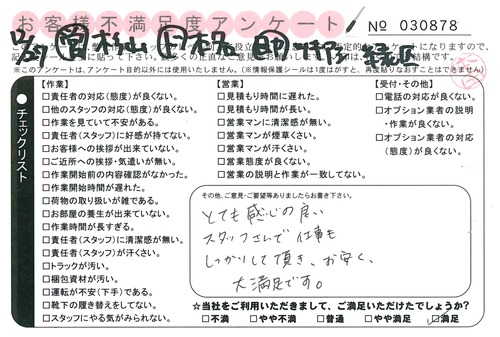 お客様不満足度アンケート
№ 030878
※このアンケートは、アンケート目的以外には使用いたしません。(※情報保護シールは1度はがすと、再度貼りなおすことはできません)
チェックリスト
【作業】
□責任者の対応(態度)が良くない。
□他のスタッフの対応(態度)が良くない。
□作業を見ていて不安がある。
□責任者(スタッフ)に好感が持てない。
□お客様への挨拶が出来ていない。
□ご近所への挨拶・気遣いが無い。
□作業開始前の内容確認がなかった。
□作業開始時間が遅れた。
□荷物の取り扱いが雑である。
□お部屋の養生が出来ていない。
□作業時間が長すぎる。
□責任者(スタッフ)に清潔感が無い。
□責任者(スタッフ)が汗くさい。
□トラックが汚い。
□梱包資材が汚い。
□運転が不安(下手)である。
□靴下の履き替えをしてない。
□スタッフにやる気がみられない。
【営業】
□見積もり時間に遅れた。
□見積もり時間が長い。
□営業マンに清潔感が無い。
□営業マンが煙草くさい。
□営業マンが汗くさい。
□営業態度が良くない。
□営業の説明と作業が一致してない。
【受付・その他】
□電話の対応が良くない。
□オプション業者の説明・作業が良くない。
□オプション業者の対応(態度)が良くない。
その他、ご意見・ご要望等ありましたらお書き下さい。
とても感じの良い
スタッフさんで仕事も
しっかりして頂き、お安く、
大満足です。
☆当社をご利用いただきまして、ご満足いただけたでしょうか?
□不満 □やや不満 □普通 □やや満足 ☑満足